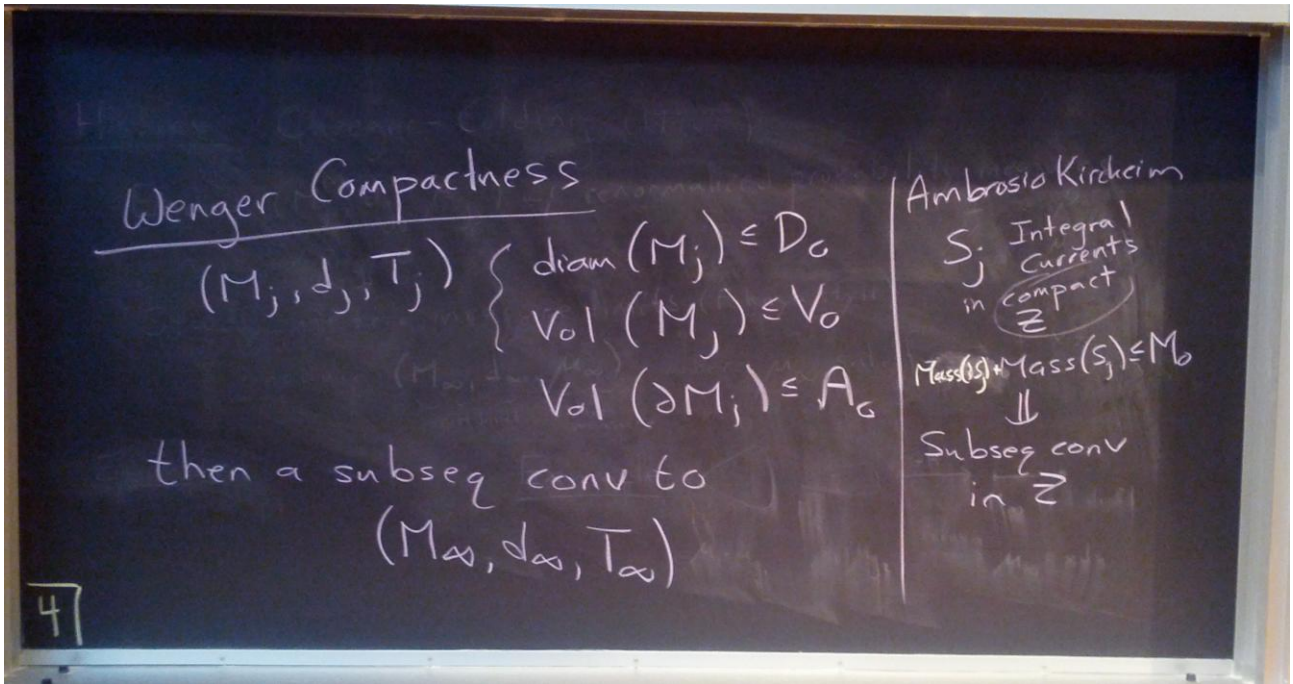 Wenger Compactness
(M_j, d_j, T_j) { diam(M_j) ≤ D_0
Vol(M_j) ≤ V_0
Vol(∂M_j) ≤ A_0
then a subseq conv to
(M_∞, d_∞, T_∞)
4
Ambrosio Kircheim
S_j Integral
Currents
in compact
Z
Mass(∂S_j)+Mass(S_j)≤M_0
⇓
Subseq conv
in Z